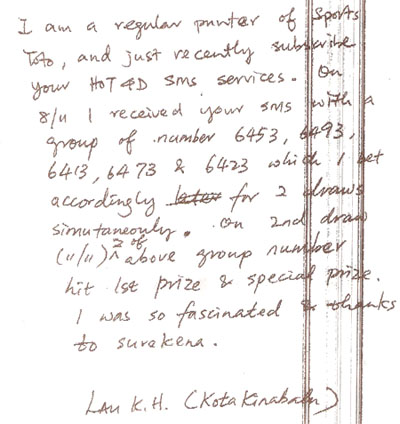 I am a regular punter of Sports
Toto, and just recently subscribe
your HOT 4D sms services. On
8/11 I received your sms with a
group of number 6453, 6493,
6413, 6473 & 6423 which I bet
accordingly later for 2 draws
simutaneonly. On 2nd draw
(11/11) 2 of above group number
hit 1st prize & special prize.
I was so fascinated & thanks
to surekena.
Lau K.H. (Kota Kinabalu)